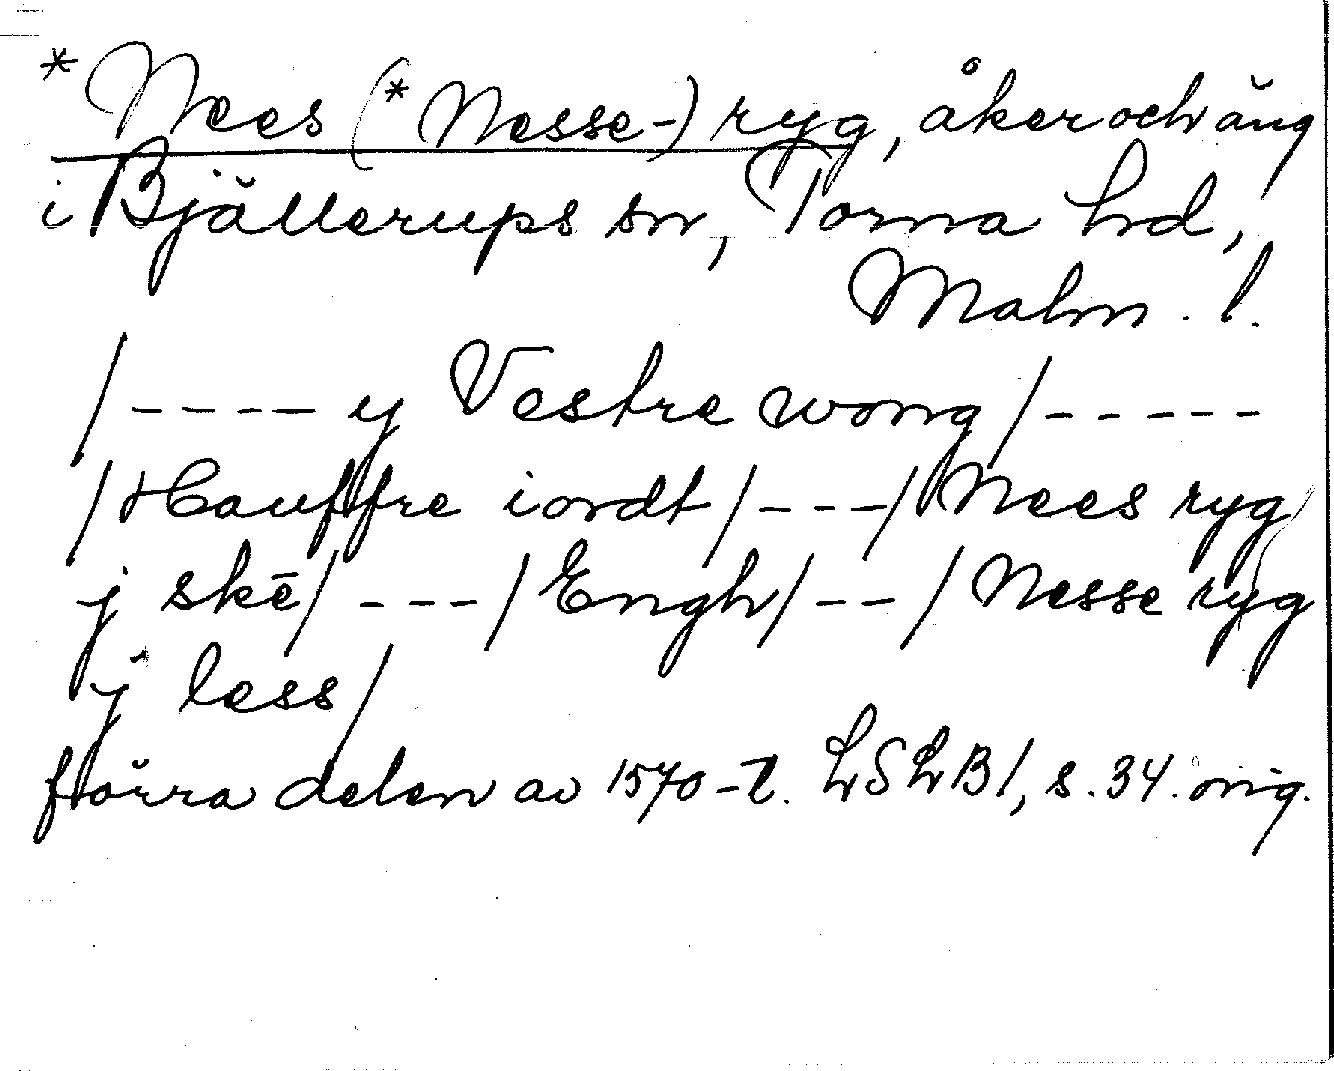 *Nees (*Nesse-) ryg, åker och äng
i Bjällerups sn, Torna hd,
Malm. l.
/---- y Vestre wong/-----
/Hauffre iordt/---/Nees ryg
j skē/---/Engh/--/Nesse ryg
j less/
förra delen av 1570-t. LSLB1, s. 34. orig.